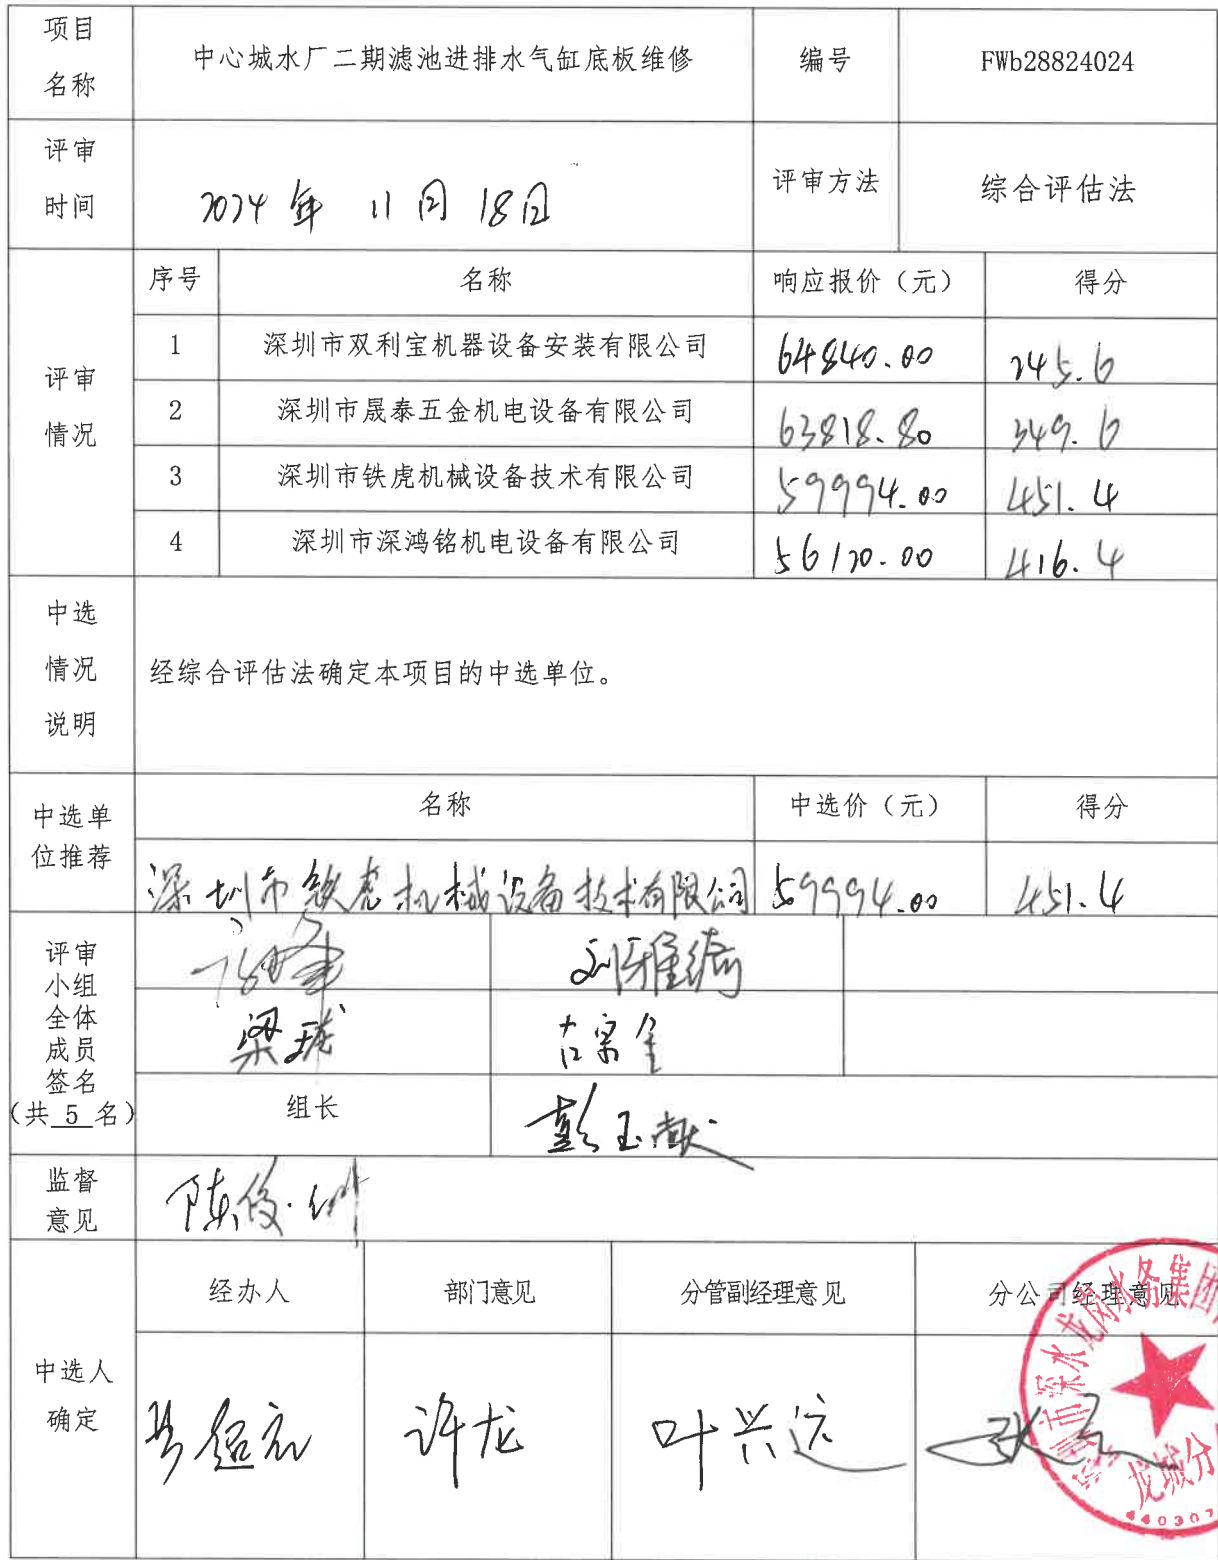 项目名称 中心城水厂二期滤池进排水气缸底板维修 编号 FWb28824024
评审时间 2024年 11月 18日 评审方法 综合评估法
评审情况
序号 名称 响应报价（元） 得分
1 深圳市双利宝机器设备安装有限公司 64840.00 245.6
2 深圳市晟泰五金机电设备有限公司 63818.80 349.6
3 深圳市铁虎机械设备技术有限公司 59994.00 451.4
4 深圳市深鸿铭机电设备有限公司 56120.00 416.4
中选情况说明 经综合评估法确定本项目的中选单位。
中选单位推荐
名称 中选价（元） 得分
深圳市铁虎机械设备技术有限公司 59994.00 451.4
评审小组全体成员签名（共 5 名）
刘雅绮
梁珑
组长 彭玉献
监督意见 陈俊
中选人确定
经办人 部门意见 分管副经理意见 分公司经理意见
许龙 叶兴远
深圳市深水龙岗水务集团
龙城分
440307